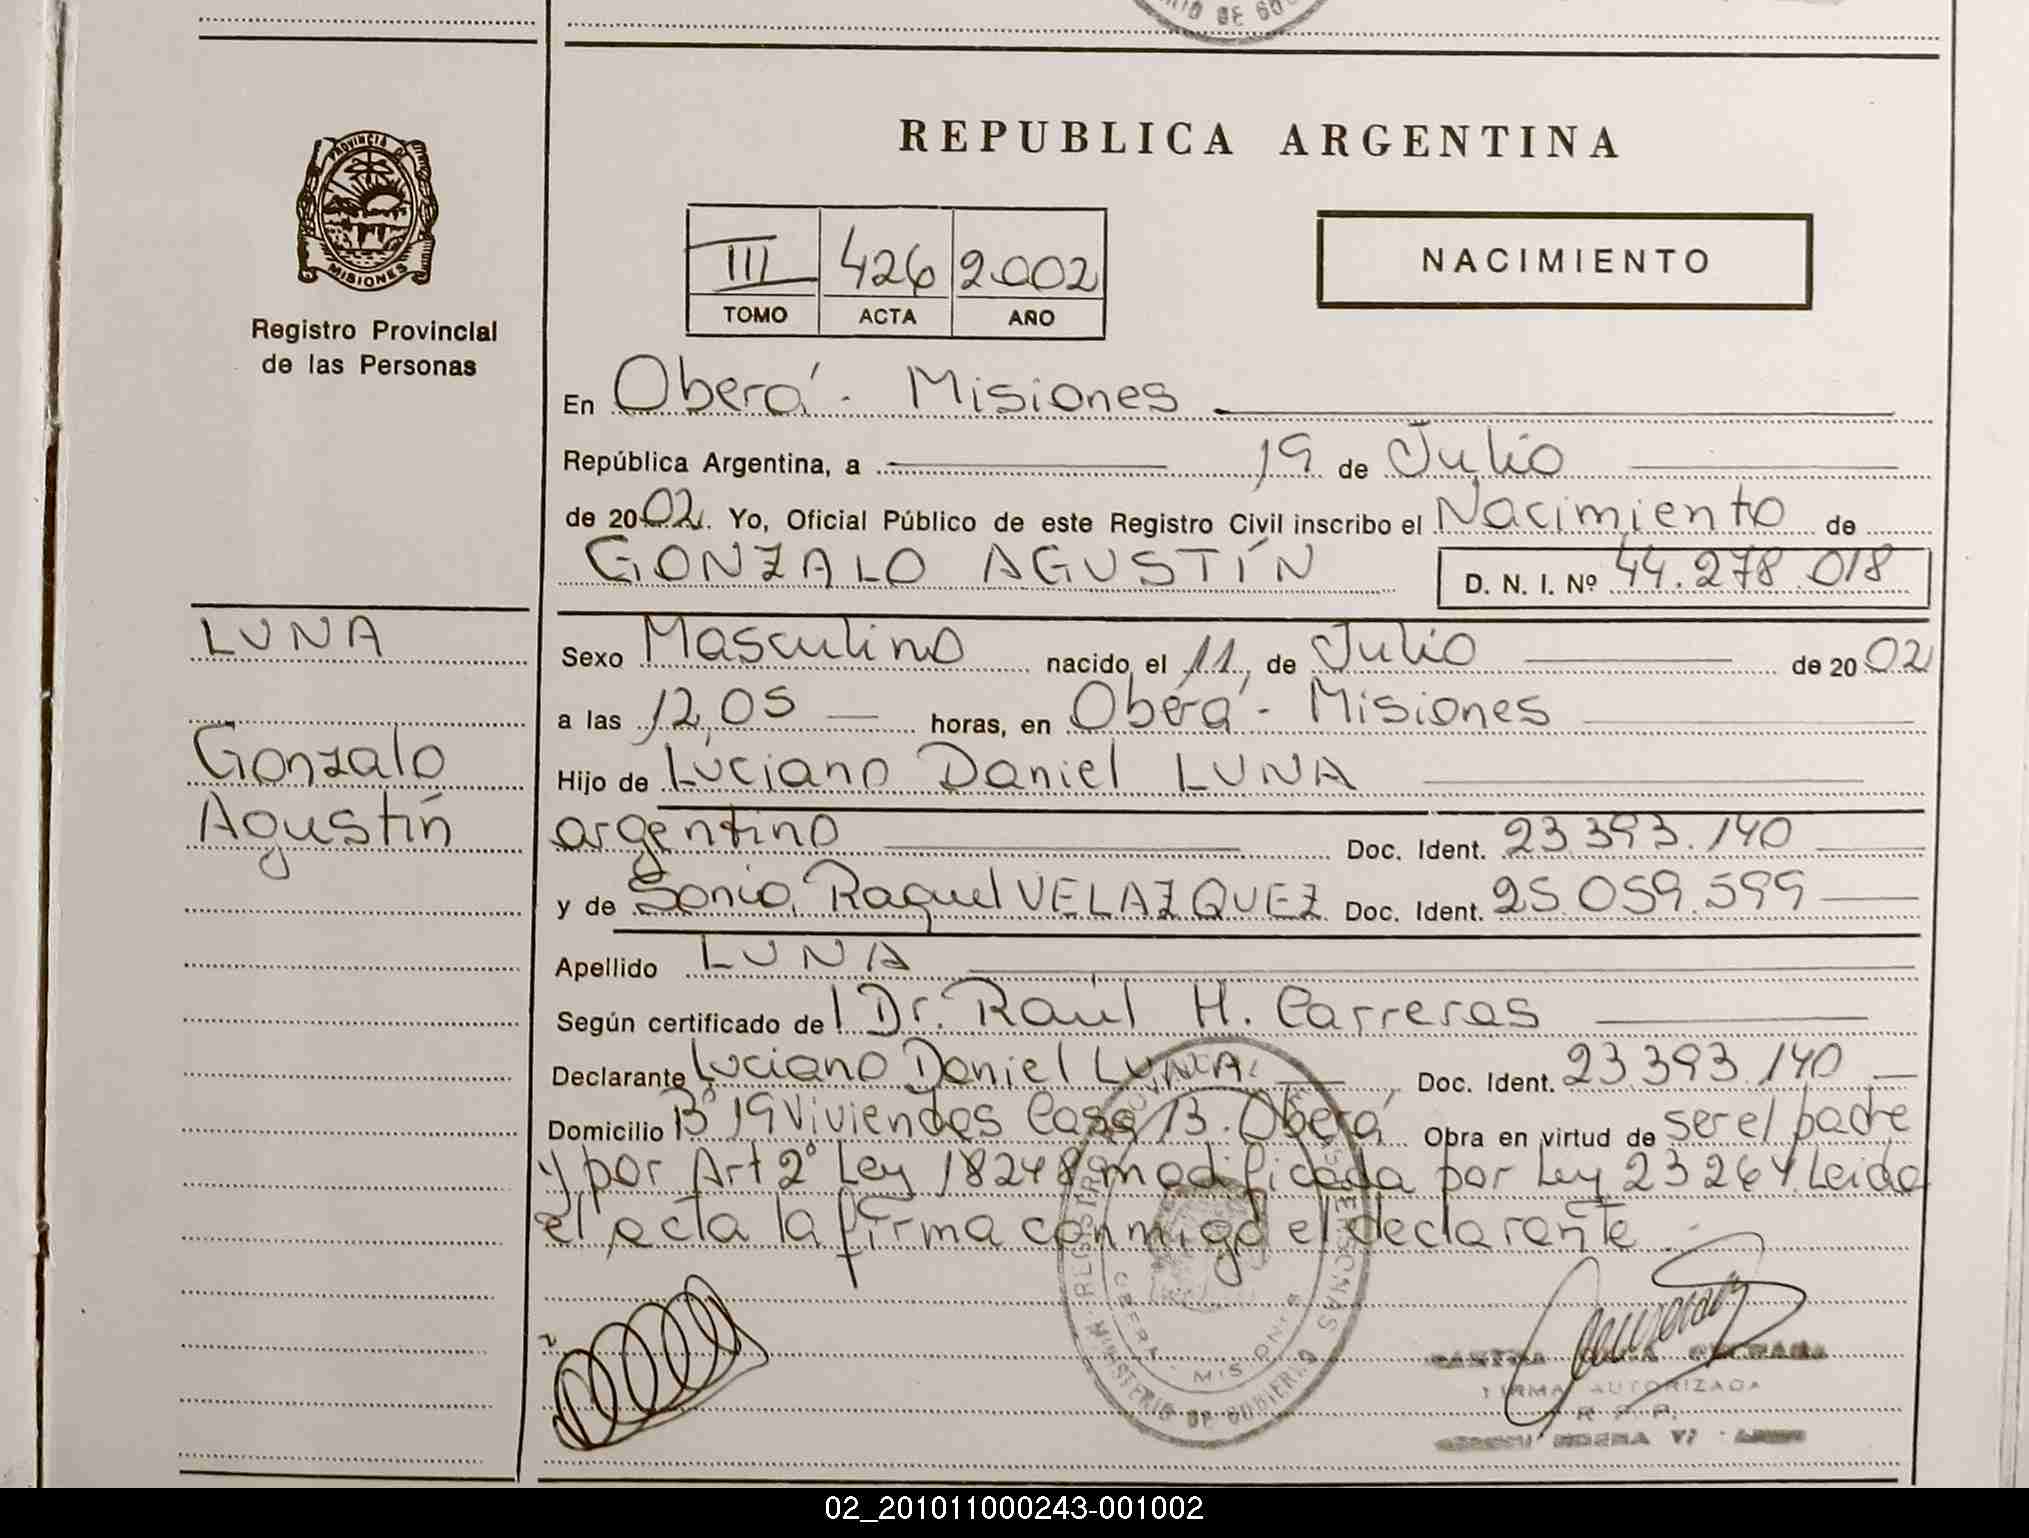 RIO DE GOB
PROVINCIA DE
MISIONES
Registro Provincial
de las Personas
REPUBLICA ARGENTINA
III 426 2002
TOMO ACTA AÑO
NACIMIENTO
En Oberá - Misiones
República Argentina, a 19 de Julio
de 2002. Yo, Oficial Público de este Registro Civil inscribo el Nacimiento de
GONZALO AGUSTÍN D. N. I. Nº 44.278.018
LUNA
Gonzalo
Agustín
Sexo Masculino nacido el 11, de Julio de 2002
a las 12,05 horas, en Oberá - Misiones
Hijo de Luciano Daniel LUNA
argentino Doc. Ident. 23.393.140
y de Sonia Raquel VELAZQUEZ Doc. Ident. 25.059.599
Apellido LUNA
Según certificado del Dr. Raúl H. Carreras
Declarante Luciano Daniel LUNA Doc. Ident. 23.393.140
Domicilio Bº 19 Viviendas Casa 13. Oberá Obra en virtud de ser el padre
y por Art 2º Ley 18248 modificada por Ley 23264. Leída
el acta la firma conmigo el declarante
REGISTRO PERSONAS
OBERA - MISIONES
MINISTERIO DE GOBIERNO
FIRMA AUTORIZADA
R. P. P.
02_201011000243-001002